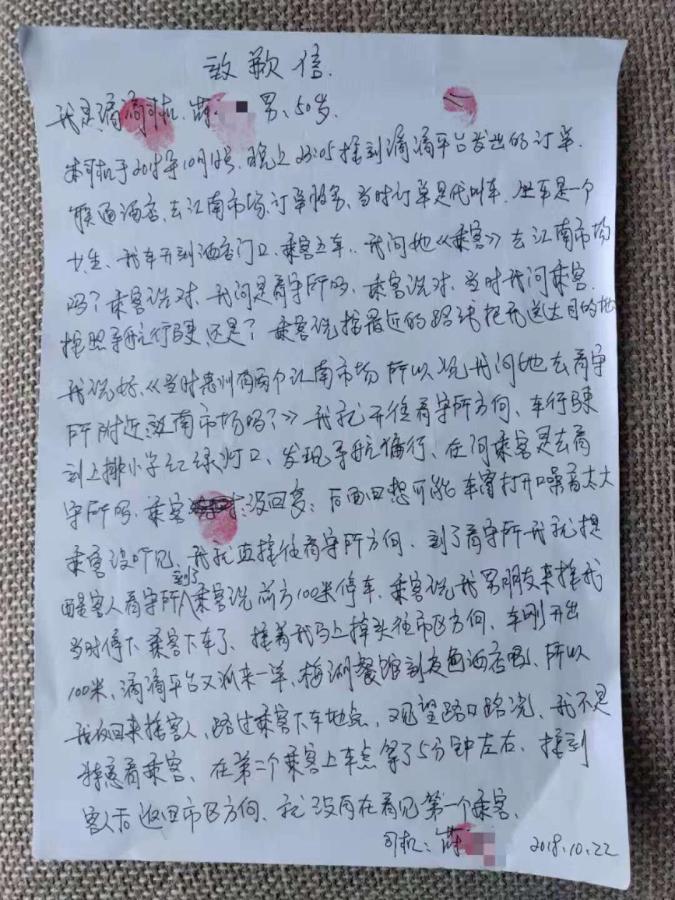 致歉信
我是滴滴司机.薛 男、50岁、
本司机于2018年10月 号、晚上 接到滴滴平台发出的订单.
酒店、去江南市场、订单服务、当时订单是代叫车.坐车是一个
女生、我车开到酒店门口、乘客上车..我问她《乘客》去江南市场
吗?乘客说对、我问是看守所吗、乘客说对、当时我问乘客.
按照导航行驶、还是?乘客说按最近的路线把我送上目的地
我说好、《当时惠州有两个江南市场所以说我问她去看守
所附近江南市场吗?》我就开往看守所方向、车行驶
到上排小学红绿灯口、发现导航偏行、在问乘客是去看
守所吗、乘客 没回复;后面回想可能车窗打开噪音太大
乘客没听见、我就直接往看守所方向、到了看守所我就提
醒客人看守所到了乘客说前方100米停车、乘客说我男朋友来接我
当时停下乘客下车了、接着我马上掉头往市区方向、车刚开出
100米、滴滴平台又派来一单、梅湖餐馆到 酒店吧、所以
我返回来接客人、路过乘客下车地点、观望路口路况、我不是
特意看乘客、在第二个乘客上车点等了5分钟左右、接到
客人后返回市区方向、就没再在看见第一个乘客、
司机:薛 2018.10.22